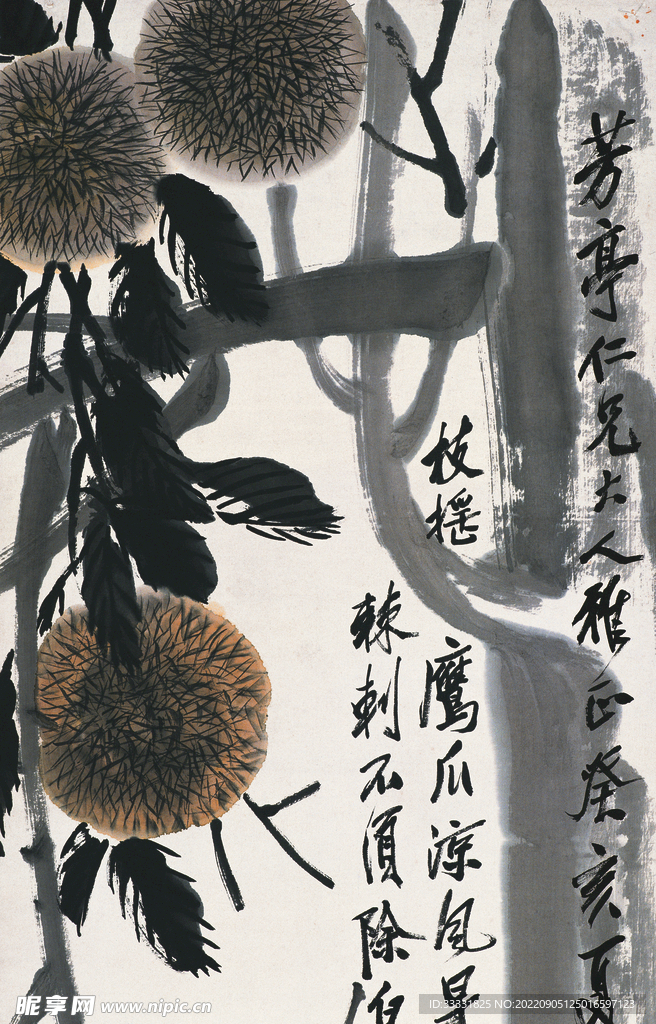 芳亭仁兄大人雅正癸亥夏
枝摇
鹰爪凉风
棘刺不须除
昵享网 www.nipic.cn
ID:33331625 NO:20220905125016597123